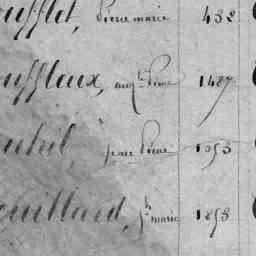 oufflet, Pierre marie 432
oufflaux, aug.te Pierre 1487
outil Jean Pierre 1053
ouillard, J.h marie 1898